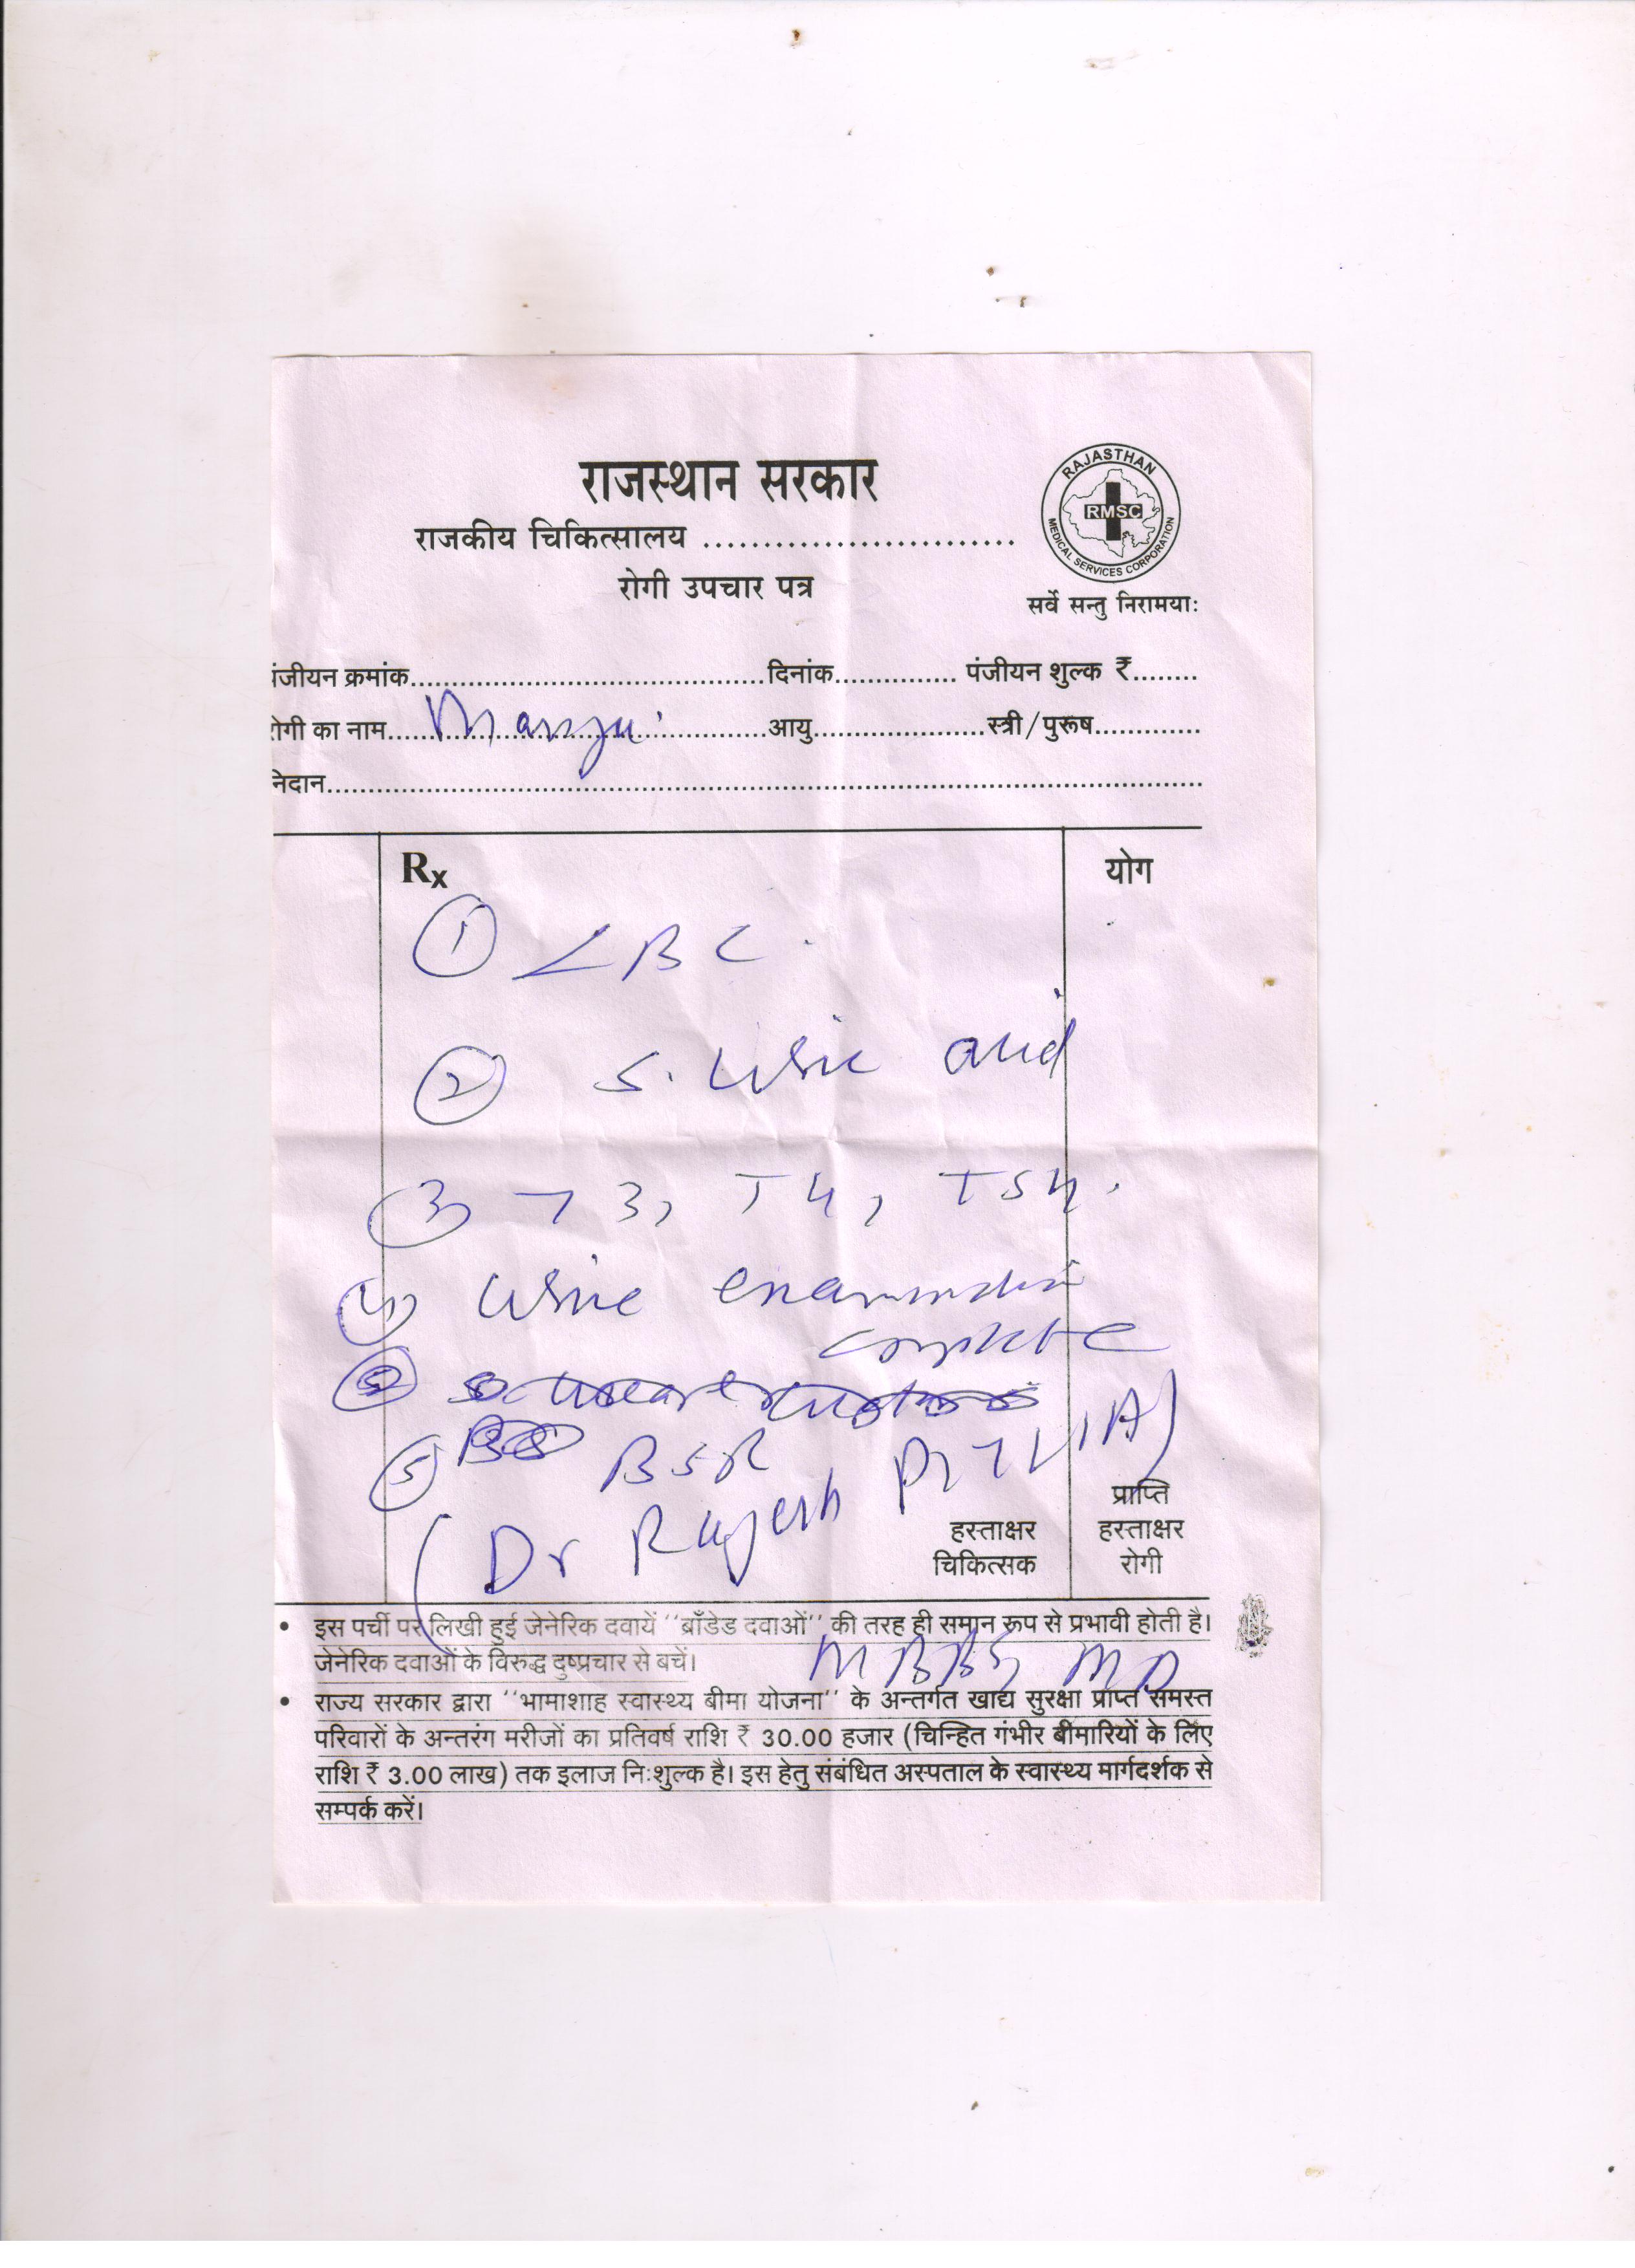 राजस्थान सरकार
राजकीय चिकित्सालय ..........................
रोगी उपचार पत्र
RAJASTHAN
RMSC
MEDICAL SERVICES CORPORATION
सर्वे सन्तु निरामयाः
ंजीयन क्रमांक..........................................दिनांक............... पंजीयन शुल्क ₹........
रोगी का नाम.....Manju.....आयु.....................स्त्री/पुरूष.............
निदान..........................................................................................
Rx
योग
① CBC.
② S. Uric acid
③ T3, T4, TSH.
④ Urine examination
complete
⑤ BSR
(Dr Rajesh
हस्ताक्षर
चिकित्सक
प्राप्ति
हस्ताक्षर
रोगी
MBBS MD
• इस पर्ची पर लिखी हुई जेनेरिक दवायें ''ब्राँडेड दवाओं'' की तरह ही समान रूप से प्रभावी होती है।
जेनेरिक दवाओं के विरुद्ध दुष्प्रचार से बचें।
• राज्य सरकार द्वारा ''भामाशाह स्वास्थ्य बीमा योजना'' के अन्तर्गत खाद्य सुरक्षा प्राप्त समस्त
परिवारों के अन्तरंग मरीजों का प्रतिवर्ष राशि ₹ 30.00 हजार (चिन्हित गंभीर बीमारियों के लिए
राशि ₹ 3.00 लाख) तक इलाज निःशुल्क है। इस हेतु संबंधित अस्पताल के स्वास्थ्य मार्गदर्शक से
सम्पर्क करें।